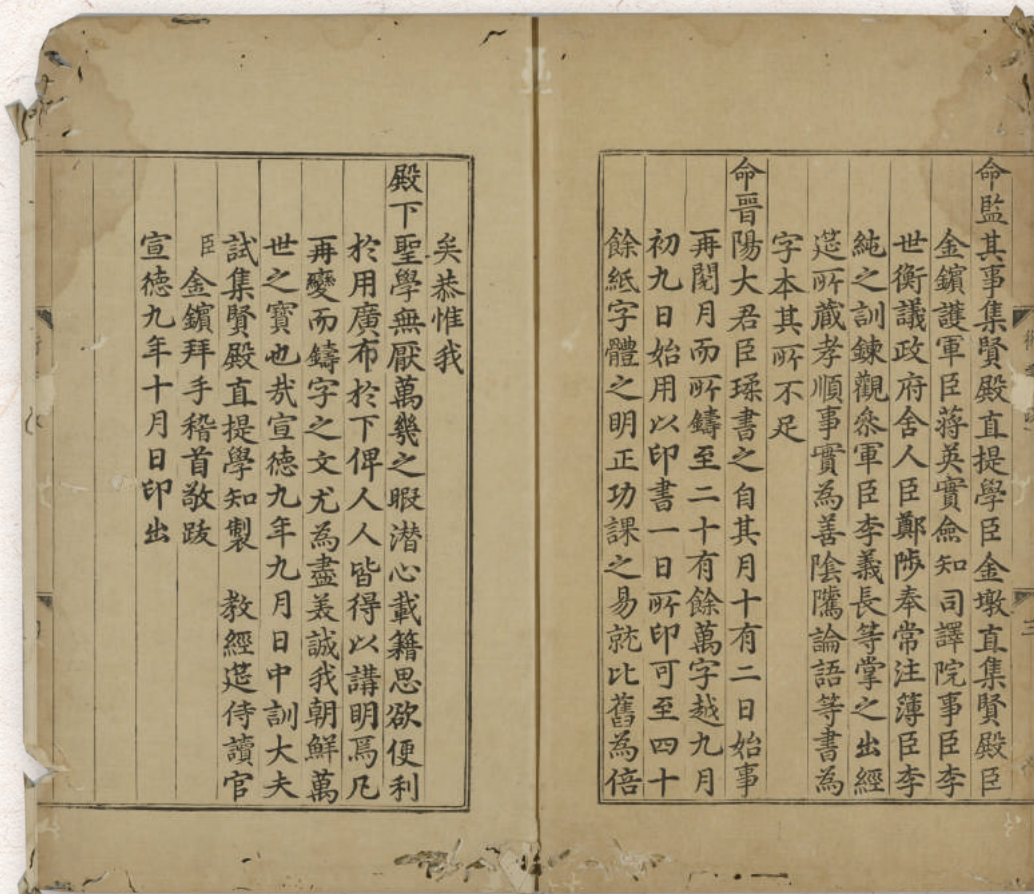 命監其事集賢殿直提學臣金墩直集賢殿臣
金鑌護軍臣蔣英實僉知司譯院事臣李
世衡議政府舍人臣鄭陟奉常注簿臣李
純之訓鍊觀叅軍臣李義長等掌之出經
筵所藏孝順事實為善陰騭論語等書為
字本其所不足
命晉陽大君臣瑈書之自其月十有二日始事
再閱月而所鑄至二十有餘萬字越九月
初九日始用以印書一日所印可至四十
餘紙字體之明正功課之易就比舊為倍
矣恭惟我
殿下聖學無厭萬幾之暇潜心載籍思欲便利
於用廣布於下俾人人皆得以講明焉凡
再變而鑄字之文尤為盡美誠我朝鮮萬
世之寶也㢤宣德九年九月日中訓大夫
試集賢殿直提學知製 教經筵侍讀官
臣金鑌拜手稽首敬跋
宣德九年十月日印出